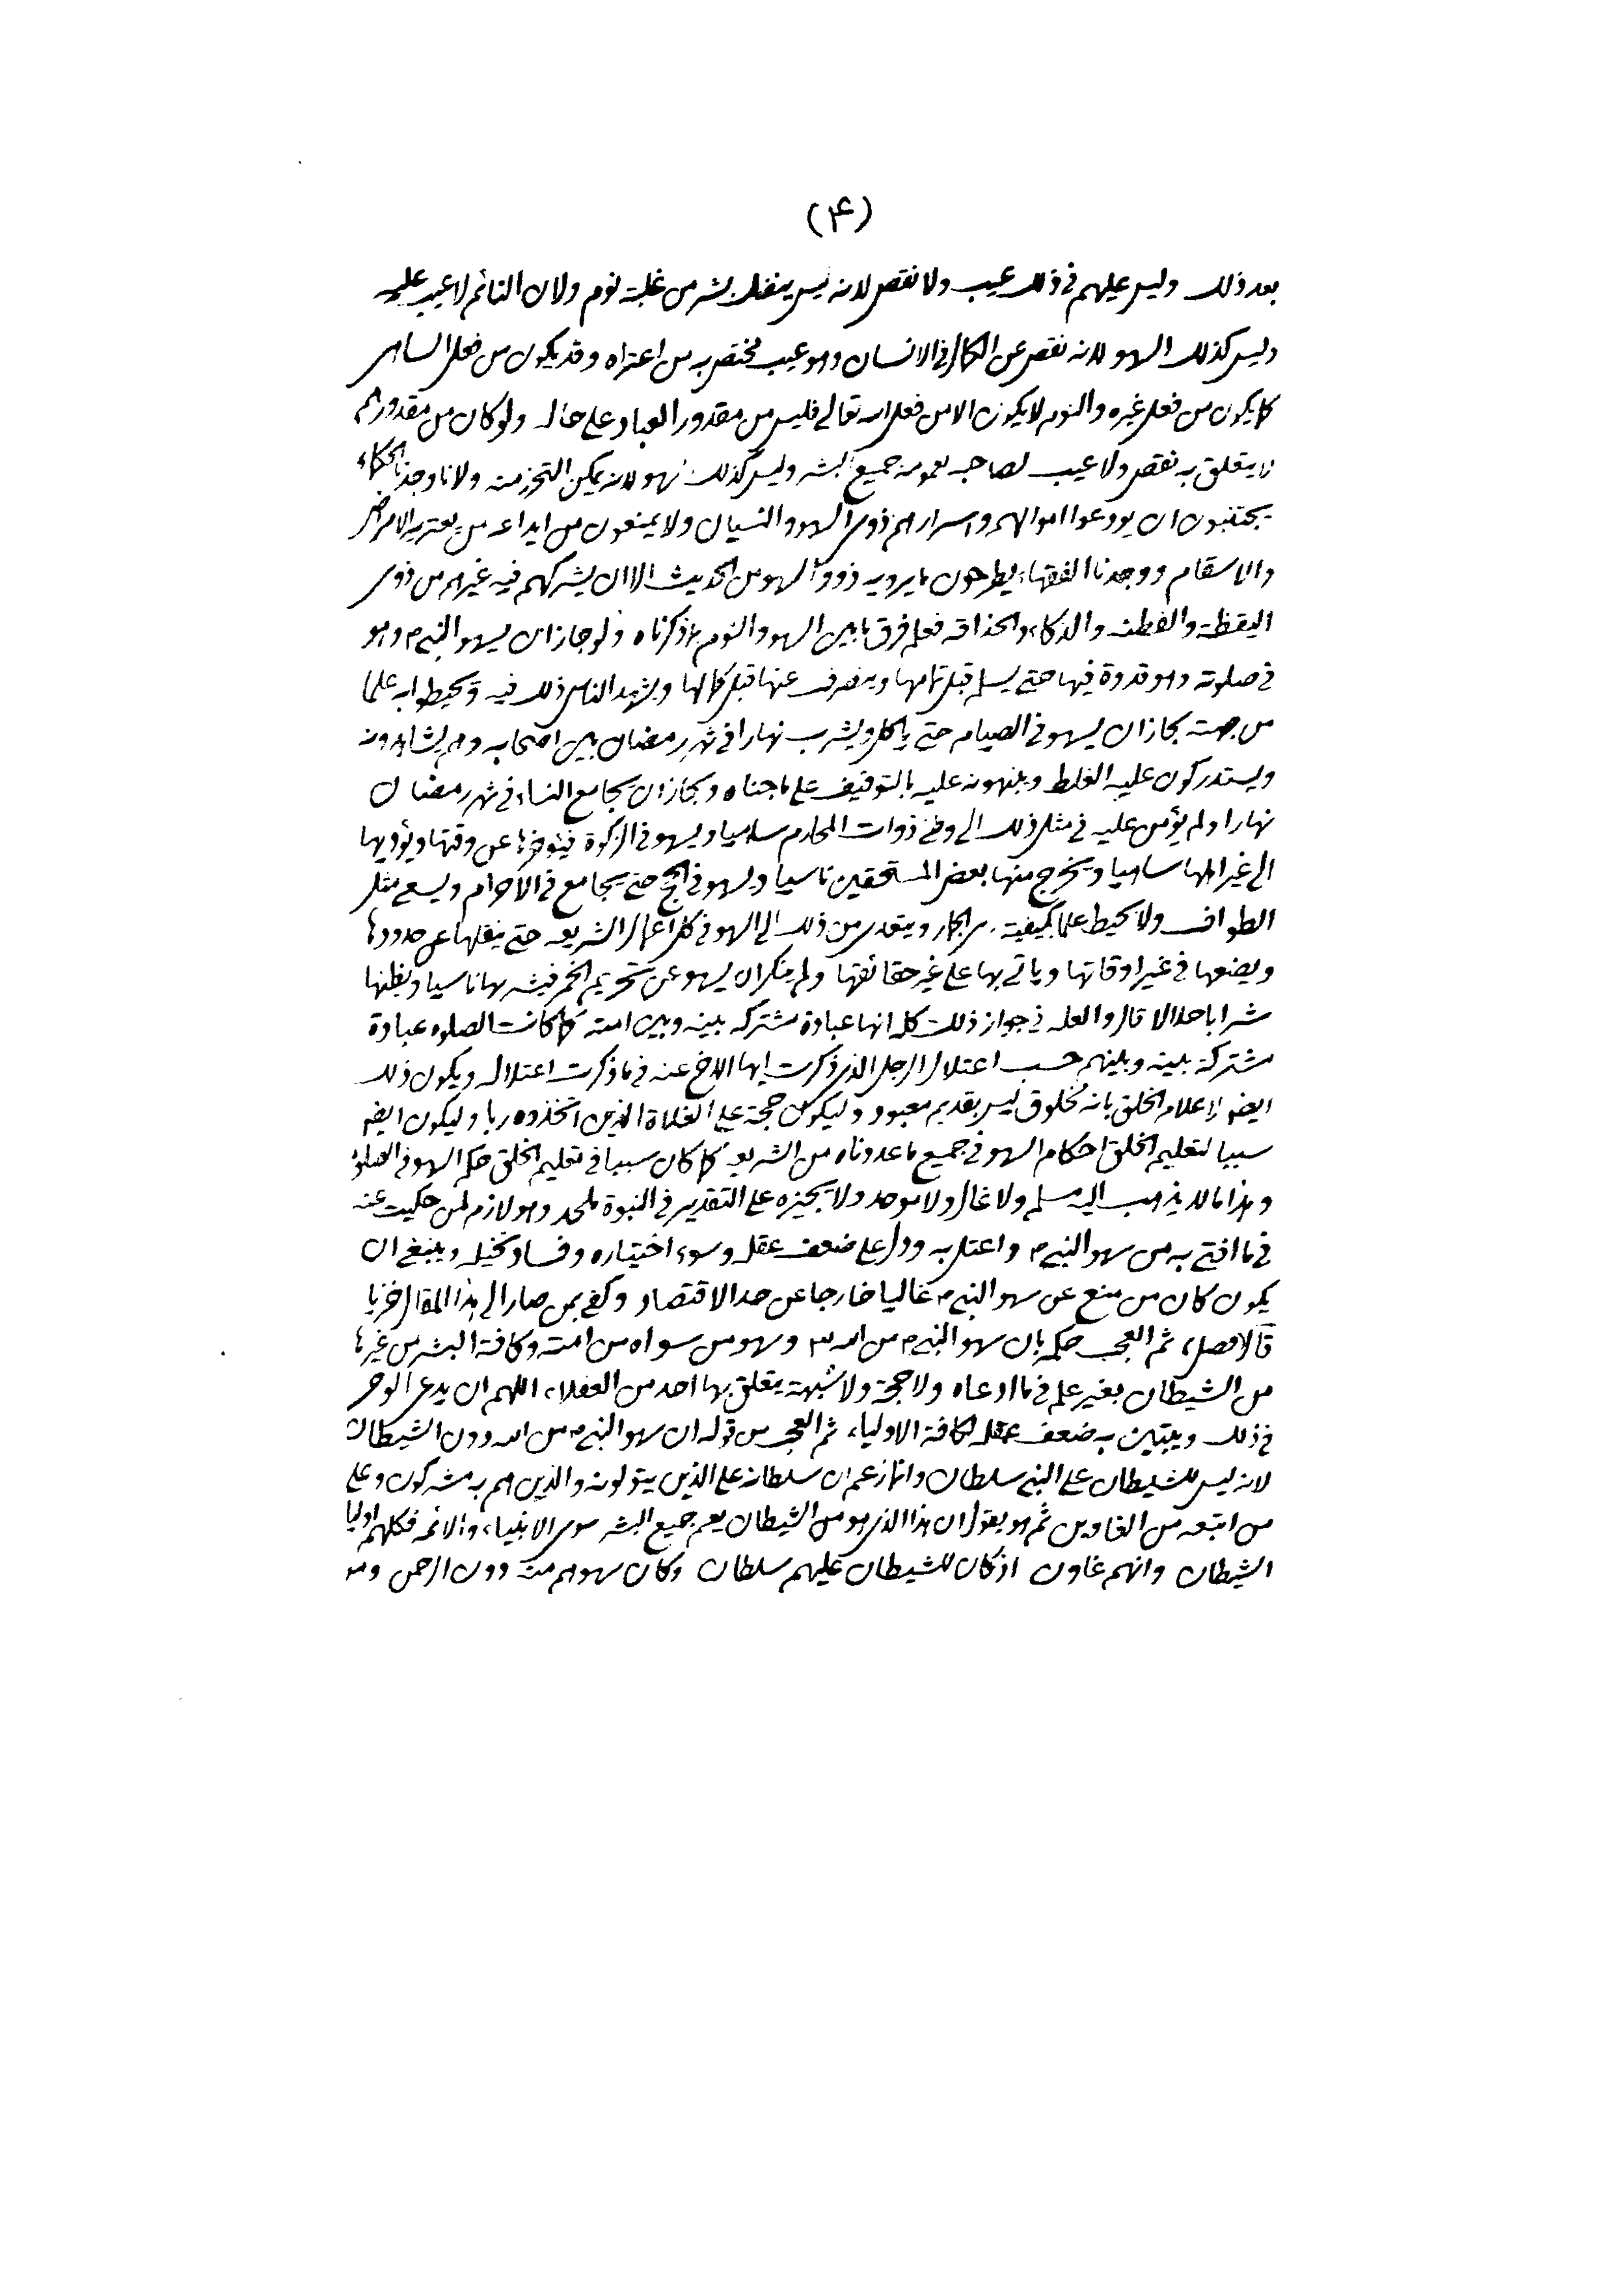 (۴)
بعد ذلك وليس عليهم في ذلك عيب ولا نقص لانه ليس ينفك بشر من غلبة نوم ولان النائم لا عيب عليه
وليس كذلك السهو لانه نقص عن الكمال في الانسان وهو عيب مختص به من اعتراه وقد يكون من فعل الساهي
كما يكون من فعل غيره والنوم لا يكون الا من فعل الله تعالى فليس من مقدور العباد على حال ولو كان من مقدورهم
لا يتعلق به نقص ولا عيب لصاحبه لعمومه جميع البشر وليس كذلك السهو لانه يمكن التحرز منه ولانا وجدنا الحكماء
يجتنبون ان يودعوا اموالهم واسرارهم ذوي السهو والنسيان ولا يمنعون من ايداعه من يعتريه الامراض
والاسقام ووجدنا الفقهاء يطرحون ما يرويه ذووا السهو من الحديث الا ان يشركهم فيه غيرهم من ذوي
اليقظة والفطنة والذكاء والحذاقة فعلم فرق ما بين السهو والنوم بما ذكرناه ولو جاز ان يسهو النبي م وهو
في صلوته وهو قدوة فيها حتى يسلم قبل تمامها وينصرف عنها قبل كمالها ويشهد الناس ذلك فيه ويحيطوا به علما
من جهته لجاز ان يسهو في الصيام حتى ياكل ويشرب نهارا في شهر رمضان بين اصحابه وهم يشاهدونه
ويستدركون عليه الغلط وينبهونه عليه بالتوقيف على ما جناه ولجاز ان يجامع النساء في شهر رمضان
نهارا ولم يؤمن عليه في مثل ذلك الى وطئ ذوات المحارم ساهيا ويسهو في الزكوة فيؤخرها عن وقتها ويؤديها
الى غير اهلها ساهيا ويخرج منها بعض المستحقين ناسيا ويسهو في الحج حتى يجامع في الاحرام ويسعى مثل
الطواف ولا يحيط علما بكيفية رمي الجمار ويتعدى من ذلك الى السهو في كل اعمال الشريعه حتى ينقلها عن حدودها
ويضعها في غير اوقاتها وياتي بها على غير حقائقها ولم ينكر ان يسهو عن تحريم الخمر فيشربها ناسيا ويظنها
شرابا حلالا قال والعله في جواز ذلك كله انها عبادة مشتركه بينه وبين امته كما كانت الصلوه عبادة
مشتركة بينه وبينهم حسب اعتلال الرجل الذي ذكرت ايها الاخ عنه في ما ذكرت اعتلاله ويكون ذلك
ايضو لاعلام الخلق بانه مخلوق ليس بقديم معبود وليكون حجة على الغلاة الذين اتخذوه ربا وليكون ايضو
سببا لتعليم الخلق احكام السهو في جميع ما عددناه من الشريعه كما كان سببا في تعليم الخلق حكم السهو في الصلوة
وهذا ما لا يذهب اليه مسلم ولا غال ولا موحد ولا يجيزه على التقدير في النبوة ملحد وهو لازم لمن حكيت عنه
في ما افتى به من سهو النبي م واعتل به ودل على ضعف عقله وسوء اختياره وفساد تخيله وينبغي ان
يكون كان من منع عن سهو النبي م غاليا خارجا عن حد الاقتصاد وكفى بمن صار الى هذا المقال خزيا
قال فصل ثم العجب حكمه بان سهو النبي م من الله وسهو من سواه من امته وكافة البشر من غيرها
من الشيطان بغير علم في ما ادعاه ولا حجة ولا شبهة يتعلق بها احد من العقلاء اللهم ان يدعى الوحي
في ذلك ويبتين به ضعف عقله لكافة الاولياء ثم العجب من قوله ان سهو النبي م من الله دون الشيطان
لانه ليس للشيطان على النبي سلطان وانما زعم ان سلطانه على الذين يتولونه والذين هم به مشركون وعلى
من اتبعه من الغاوين ثم هو يقول ان هذا الذي هو من الشيطان يعم جميع البشر سوى الانبياء والائمه فكلهم اوليا
الشيطان وانهم غاون اذ كان للشيطان عليهم سلطان وكان سهوهم منه دون الرحمن ومو